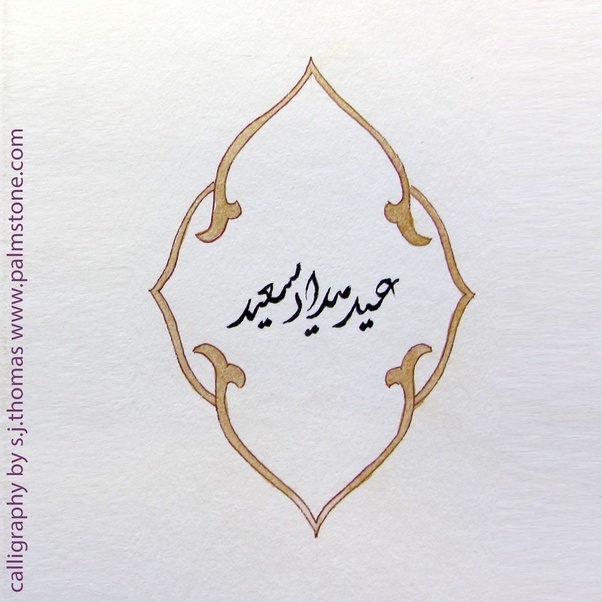 عيد ميلاد سعيد
calligraphy by s.j.thomas www.palmstone.com